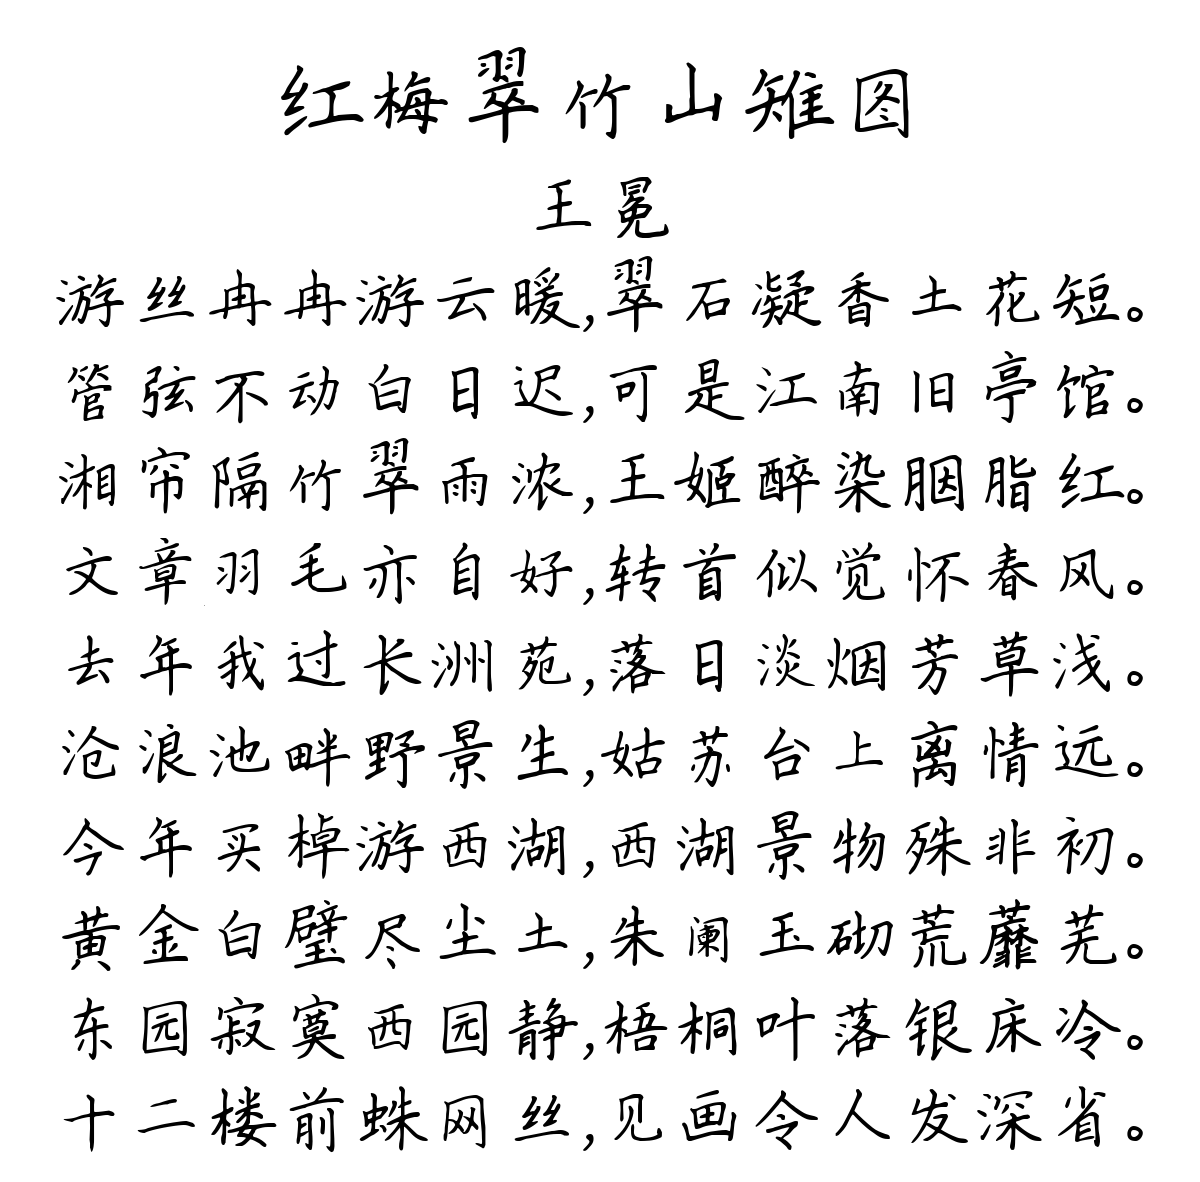 红梅翠竹山雉图
王冕
游丝冉冉游云暖,翠石凝香土花短。
管弦不动白日迟,可是江南旧亭馆。
湘帘隔竹翠雨浓,王姬醉染胭脂红。
文章羽毛亦自好,转首似觉怀春风。
去年我过长洲苑,落日淡烟芳草浅。
沧浪池畔野景生,姑苏台上离情远。
今年买棹游西湖,西湖景物殊非初。
黄金白璧尽尘土,朱阑玉砌荒蘼芜。
东园寂寞西园静,梧桐叶落银床冷。
十二楼前蛛网丝,见画令人发深省。